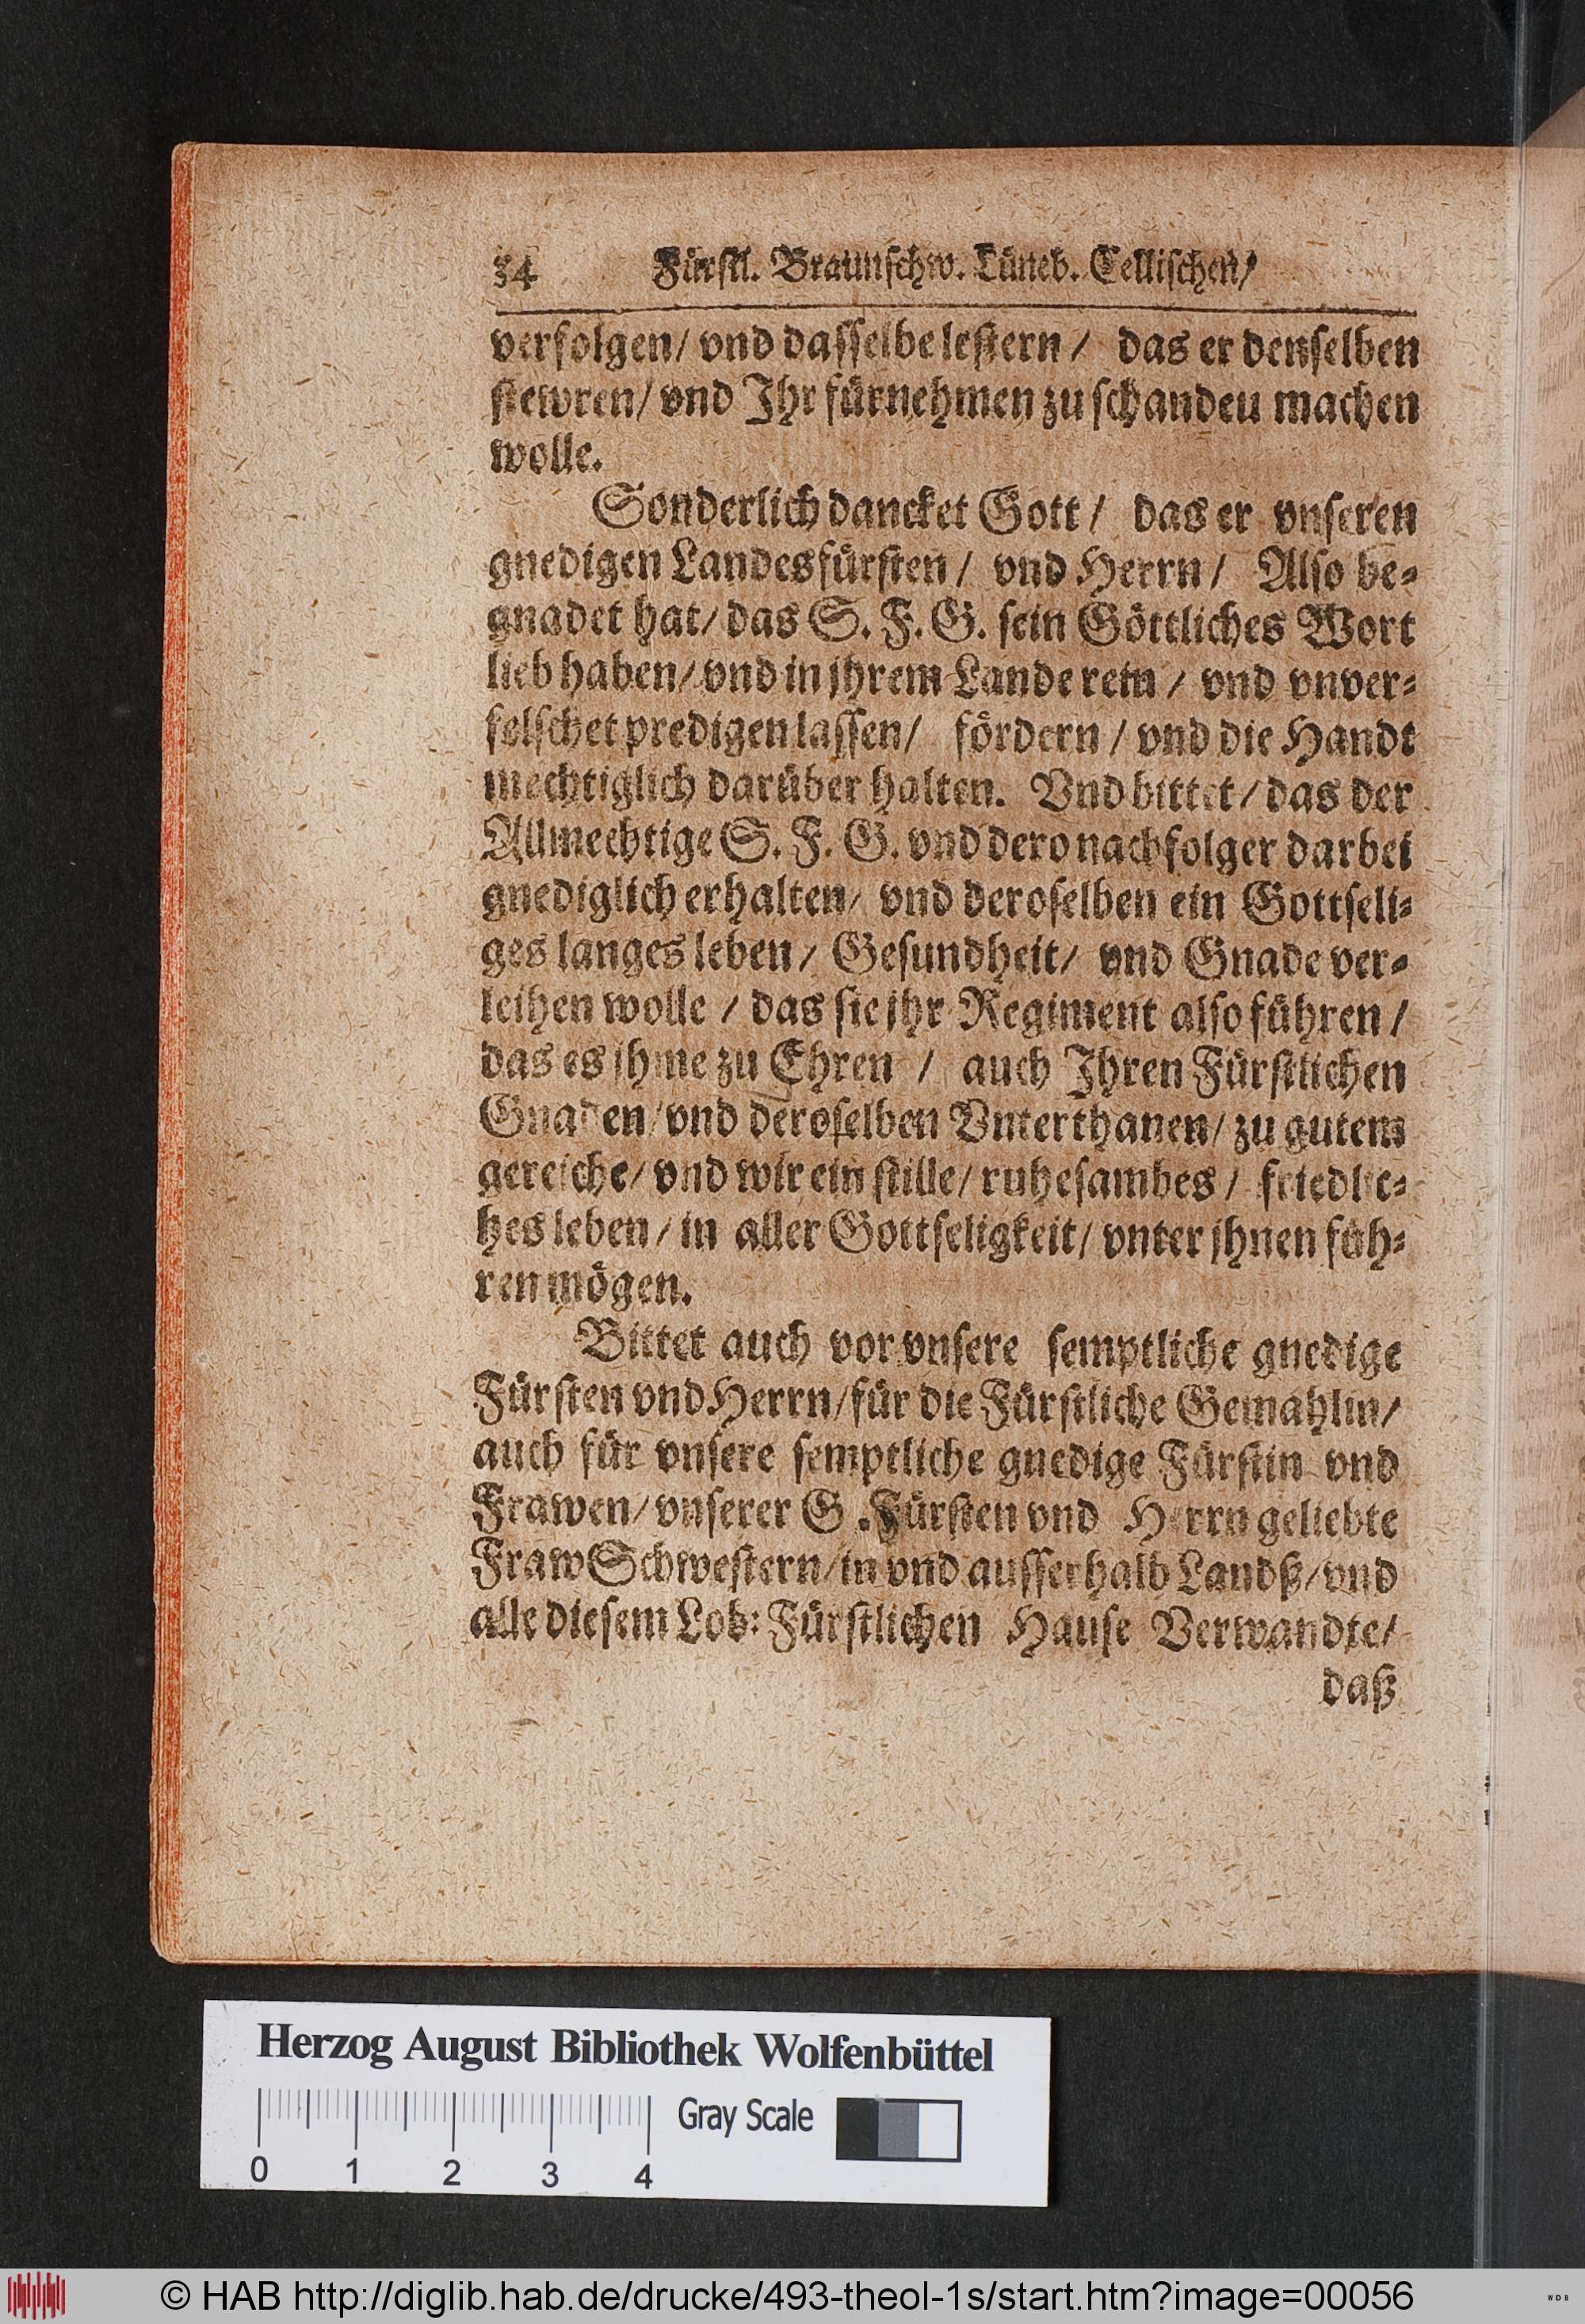 34 Fürstl. Braunschw. Lüneb. Cellischen/
verfolgen/ vnd dasselbe lestern / das er denselben
stewren/ vnd Ihr fürnehmen zu schandeu machen
wolle.
Sonderlich dancket Gott / das er vnseren
gnedigen Landesfürsten / vnd Herrn / Also be-
gnadet hat/ das S. F. G. sein Göttliches Wort
lieb haben/ vnd in jhrem Lande rein / vnd vnver-
felschet predigen lassen/ fördern / vnd die Handt
mechtiglich darüber halten. Vnd bittet / das der
Allmechtige S. F. G. vnd dero nachfolger darbei
gnediglich erhalten/ vnd deroselben ein Gottseli-
ges langes leben / Gesundheit/ vnd Gnade ver-
leihen wolle / das sie jhr Regiment also führen /
das es jhme zu Ehren / auch Ihren Fürstlichen
Gnaden/ vnd deroselben Vnterthanen/ zu gutem
gereiche/ vnd wir ein stille/ ruhesambes / friedlic-
hes leben / in aller Gottseligkeit/ vnter jhnen füh-
ren mögen.
Bittet auch vor vnsere semptliche gnedige
Fürsten vnd Herrn/ für die Fürstliche Gemahlin/
auch für vnsere semptliche gnedige Fürstin vnd
Frawen/ vnserer G. Fürsten vnd Herrn geliebte
Fraw Schwestern/ in vnd ausserhalb Landß/ vnd
alle diesem Lob: Fürstlichen Hause Verwandte/
daß
Herzog August Bibliothek Wolfenbüttel
Gray Scale
0 1 2 3 4
© HAB http://diglib.hab.de/drucke/493-theol-1s/start.htm?image=00056
WDB